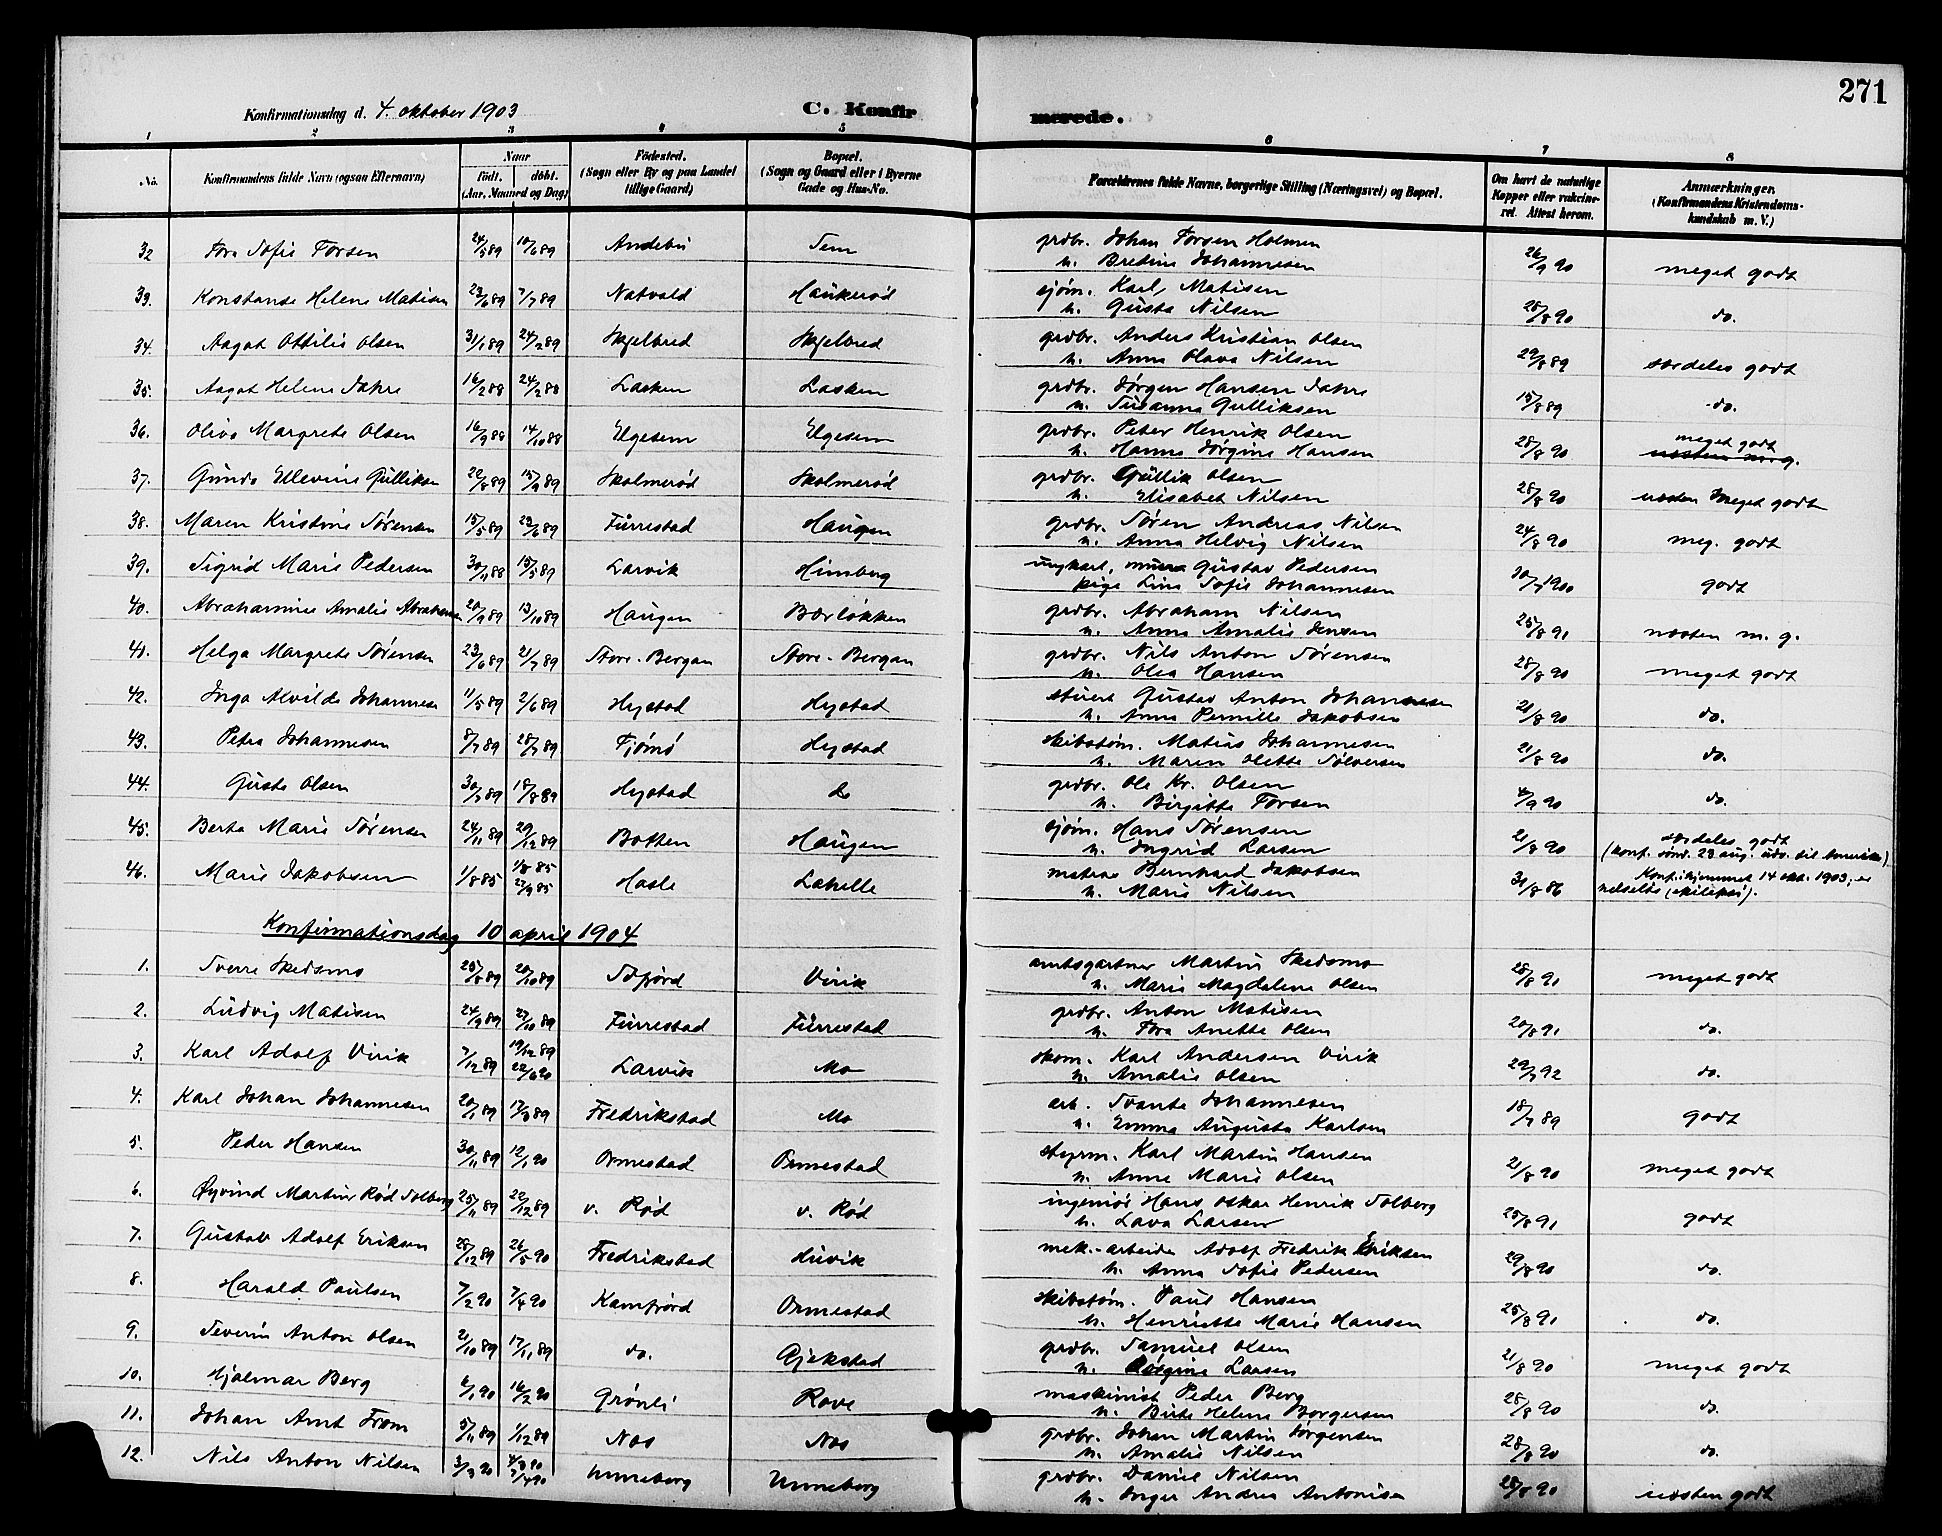 271
Konfirmationsdag d. 4. oktober 1903 C. Konfirmerede.
1 2 3 4 5 6 7 8
No. Konfirmandens fulde Navn (ogsaa Efternavn) Naar födt. döbt. (Aar, Maaned og Dag) Födested. (Sogn eller By og paa Landet tillige Gaard) Bopæl. (Sogn og Gaard eller i Byerne Gade og Hus-No. Forældrenes fulde Navne, borgerlige Stilling (Næringsvei) og Bopæl. Om havt de naturlige Kopper eller vakcineret. Attest herom. Anmærkninger. (Konfirmandens Kristendomskundskab m. V.)
32 Tora Sofie Torsen 24/5 89 10/6 89 Andebu Sem grdbr. Johan Torsen Holmen 26/9 90 meget godt
h. Bredine Johannesen
33. Konstanse Helene Matisen 23/6 89 7/7 89 Natvald Haukerød sjøm. Karl Matisen 28/8 90 do.
h. Gusta Nilsen
34. Aagot Ottilie Olsen 31/1 89 24/2 89 Skjelbred Skjelbred grdbr. Anders Kristian Olsen 29/8 89 særdeles godt
h. Anna Olava Nilsen
35. Aagot Helene Jahre 16/2 88 24/2 88 Lasken Lasken grdbr. Jørgen Hansen Jahre 15/8 89 do.
h. Susanna Gulliksen
36. Oliva Margrete Olsen 16/9 88 14/10 88 Elgesem Elgesem grdbr. Peter Henrik Olsen 28/8 90 meget godt
h. Hanna Jørgine Hansen næsten m. g.
37. Gunda Ellevine Gulliksen 22/8 89 15/9 89 Skolmerød Skolmerød grdbr. Gullik Olsen 28/8 90 næsten meget godt
h. Elisabet Nilsen
38. Maren Kristine Sørensen 15/5 89 23/6 89 Furrestad Haugen grdbr. Søren Andreas Nilsen 24/8 90 meg. godt
h. Anna Helvig Nilsen
39. Sigrid Marie Pedersen 30/11 88 15/5 89 Larvik Himberg ungkarl, Gustav Pedersen 30/7 1900 godt
pige Lina Sofie Johannesen
40. Abrahamine Amalie Abrahamsen 20/9 89 13/10 89 Haugen Bærløkken grdbr. Abraham Nilsen 25/8 91 næsten m. g.
h. Anna Amalie Jensen
41. Helga Margrete Sørensen 23/6 89 21/7 89 Store-Bergan Store-Bergan grdbr. Nils Anton Sørensen 28/8 90 meget godt
h. Olea Hansen
42. Inga Alvilde Johannesen 11/5 89 2/6 89 Hystad Hystad stuert Gustav Anton Johannesen 21/8 90 do.
h. Anna Pernille Jakobsen
43. Petra Johannesen 8/7 89 28/7 89 Tjømø Hystad skibstøm. Matias Johannesen 21/8 90 do.
h. Maren Olette Sølversen
44. Gusta Olsen 30/7 89 18/8 89 Hystad do grdbr. Ole Kr. Olsen 4/9 90 do.
h. Birgitte Torsen
45. Berta Marie Sørensen 24/11 89 29/12 89 Botten Haugen sjøm. Hans Sørensen 21/8 90 særdeles godt
h. Ingrid Larsen (konf. sønd. 23 aug. udv. til Amerika)
46. Marie Jakobsen 1/8 85 1/8 85 27/9 85 Hasle Lahelle matros Bernhard Jakobsen 31/8 86 Konf. i hjemmet 14 okt. 1903, er
h. Marie Nilsen
Konfirmationsdag 10 april 1904
1. Sverre Skedsmo 25/8 89 20/10 89 Sofjørd Virik amtsgartner Martin Skedsmo 28/8 91 meget godt
h. Marie Magdalene Olsen
2. Ludvig Matisen 24/9 89 27/10 89 Furrestad Furrestad grdbr. Anton Matisen 20/8 91 do.
h. Tora Anette Olsen
3. Karl Adolf Virik 7/12 89 19/12 89 22/6 90 Larvik Mo skom. Karl Andersen Virik 29/7 92 do.
h. Amalie Olsen
4. Karl Johan Johannesen 20/1 89 17/3 89 Fredrikstad Mo arb. Svante Johannesen 18/7 89 godt
h. Emma Augusta Karlsen
5. Peder Hansen 30/11 89 12/1 90 Ormestad Ormestad styrm. Karl Martin Hansen 21/8 90 meget godt
h. Anne Marie Olsen
6. Øyvind Martin Rød Solberg 25/11 89 22/12 89 v. Rød v. Rød ingeniør Hans Oskar Henrik Solberg 25/8 91 godt
h. Lava Larsen
7. Gustav Adolf Eriksen 28/12 89 26/5 90 Fredrikstad Huvik mek.-arbeider Adolf Fredrik Eriksen 29/8 90 do.
h. Anna Sofie Pedersen
8. Harald Paulsen 7/2 90 7/4 90 Kamfjørd Ormestad skibstøm. Paul Hansen 25/8 91 do.
h. Henriette Marie Hansen
9. Severin Anton Olsen 21/10 89 17/11 89 do. Gjekstad grdbr. Samuel Olsen 21/8 90 meget godt
h. Larsen
10. Hjalmar Berg 6/1 90 16/2 90 Grønli Rove maskinist Peder Berg 28/8 90 do.
h. Birte Helene Borgersen
11. Johan Arnt Fram 5/11 89 1/12 89 Nes Nes grdbr. Johan Martin Jørgensen 28/8 90 do.
h. Amalie Nilsen
12. Nils Anton Nilsen 3/3 90 4/3 90 7/4 90 Unneberg Unneberg grdbr. Daniel Nilsen 28/8 90 næsten godt
h. Inger Andrea Antonisen